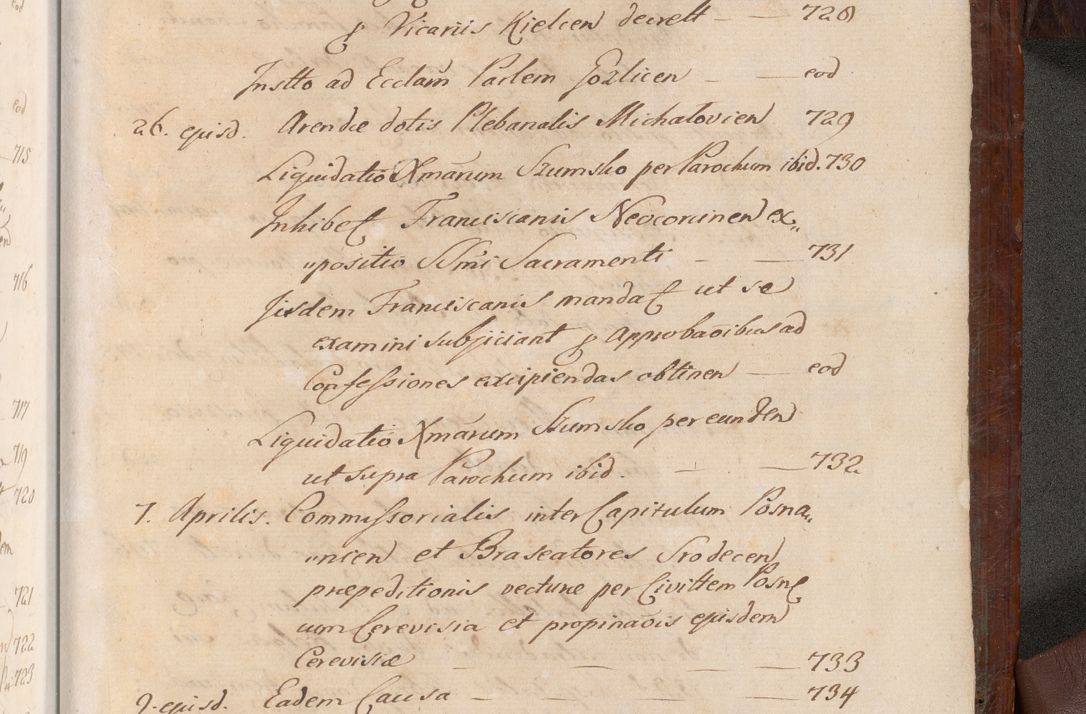 & Vicariis Kielcen decrett — — 728
Instto ad Ecclam Parlem Gozlicen — — eod
26. ejusd. Arendæ dotis Plebanalis Michalovien 729
Liquidatio Xmarum Szumsko per Parochum ibid. 730
Inhibet Franciscanis Neocorcinen ex„
„positio SSmi Sacramenti — — 731
Iisdem Franciscanis mandat ut se
examini subjiciant & Approbaõibus ad
Confessiones excipiendas obtinen — eod
Liquidatio Xmarum Szumsko per eundem
ut supra Parochum ibid. — — 732
7. Aprilis. Commissorialis inter Capitulum Posna„
„nien et Braseatores Srodecen
præpeditionis vecturæ per Civittem Posn
cum Cerevisia et propinaõis ejusdem
Cerevisiæ — — — 733
9. ejusd. Eadem Causa — — — 734
eod
715
716
717
719
720
721
722
723